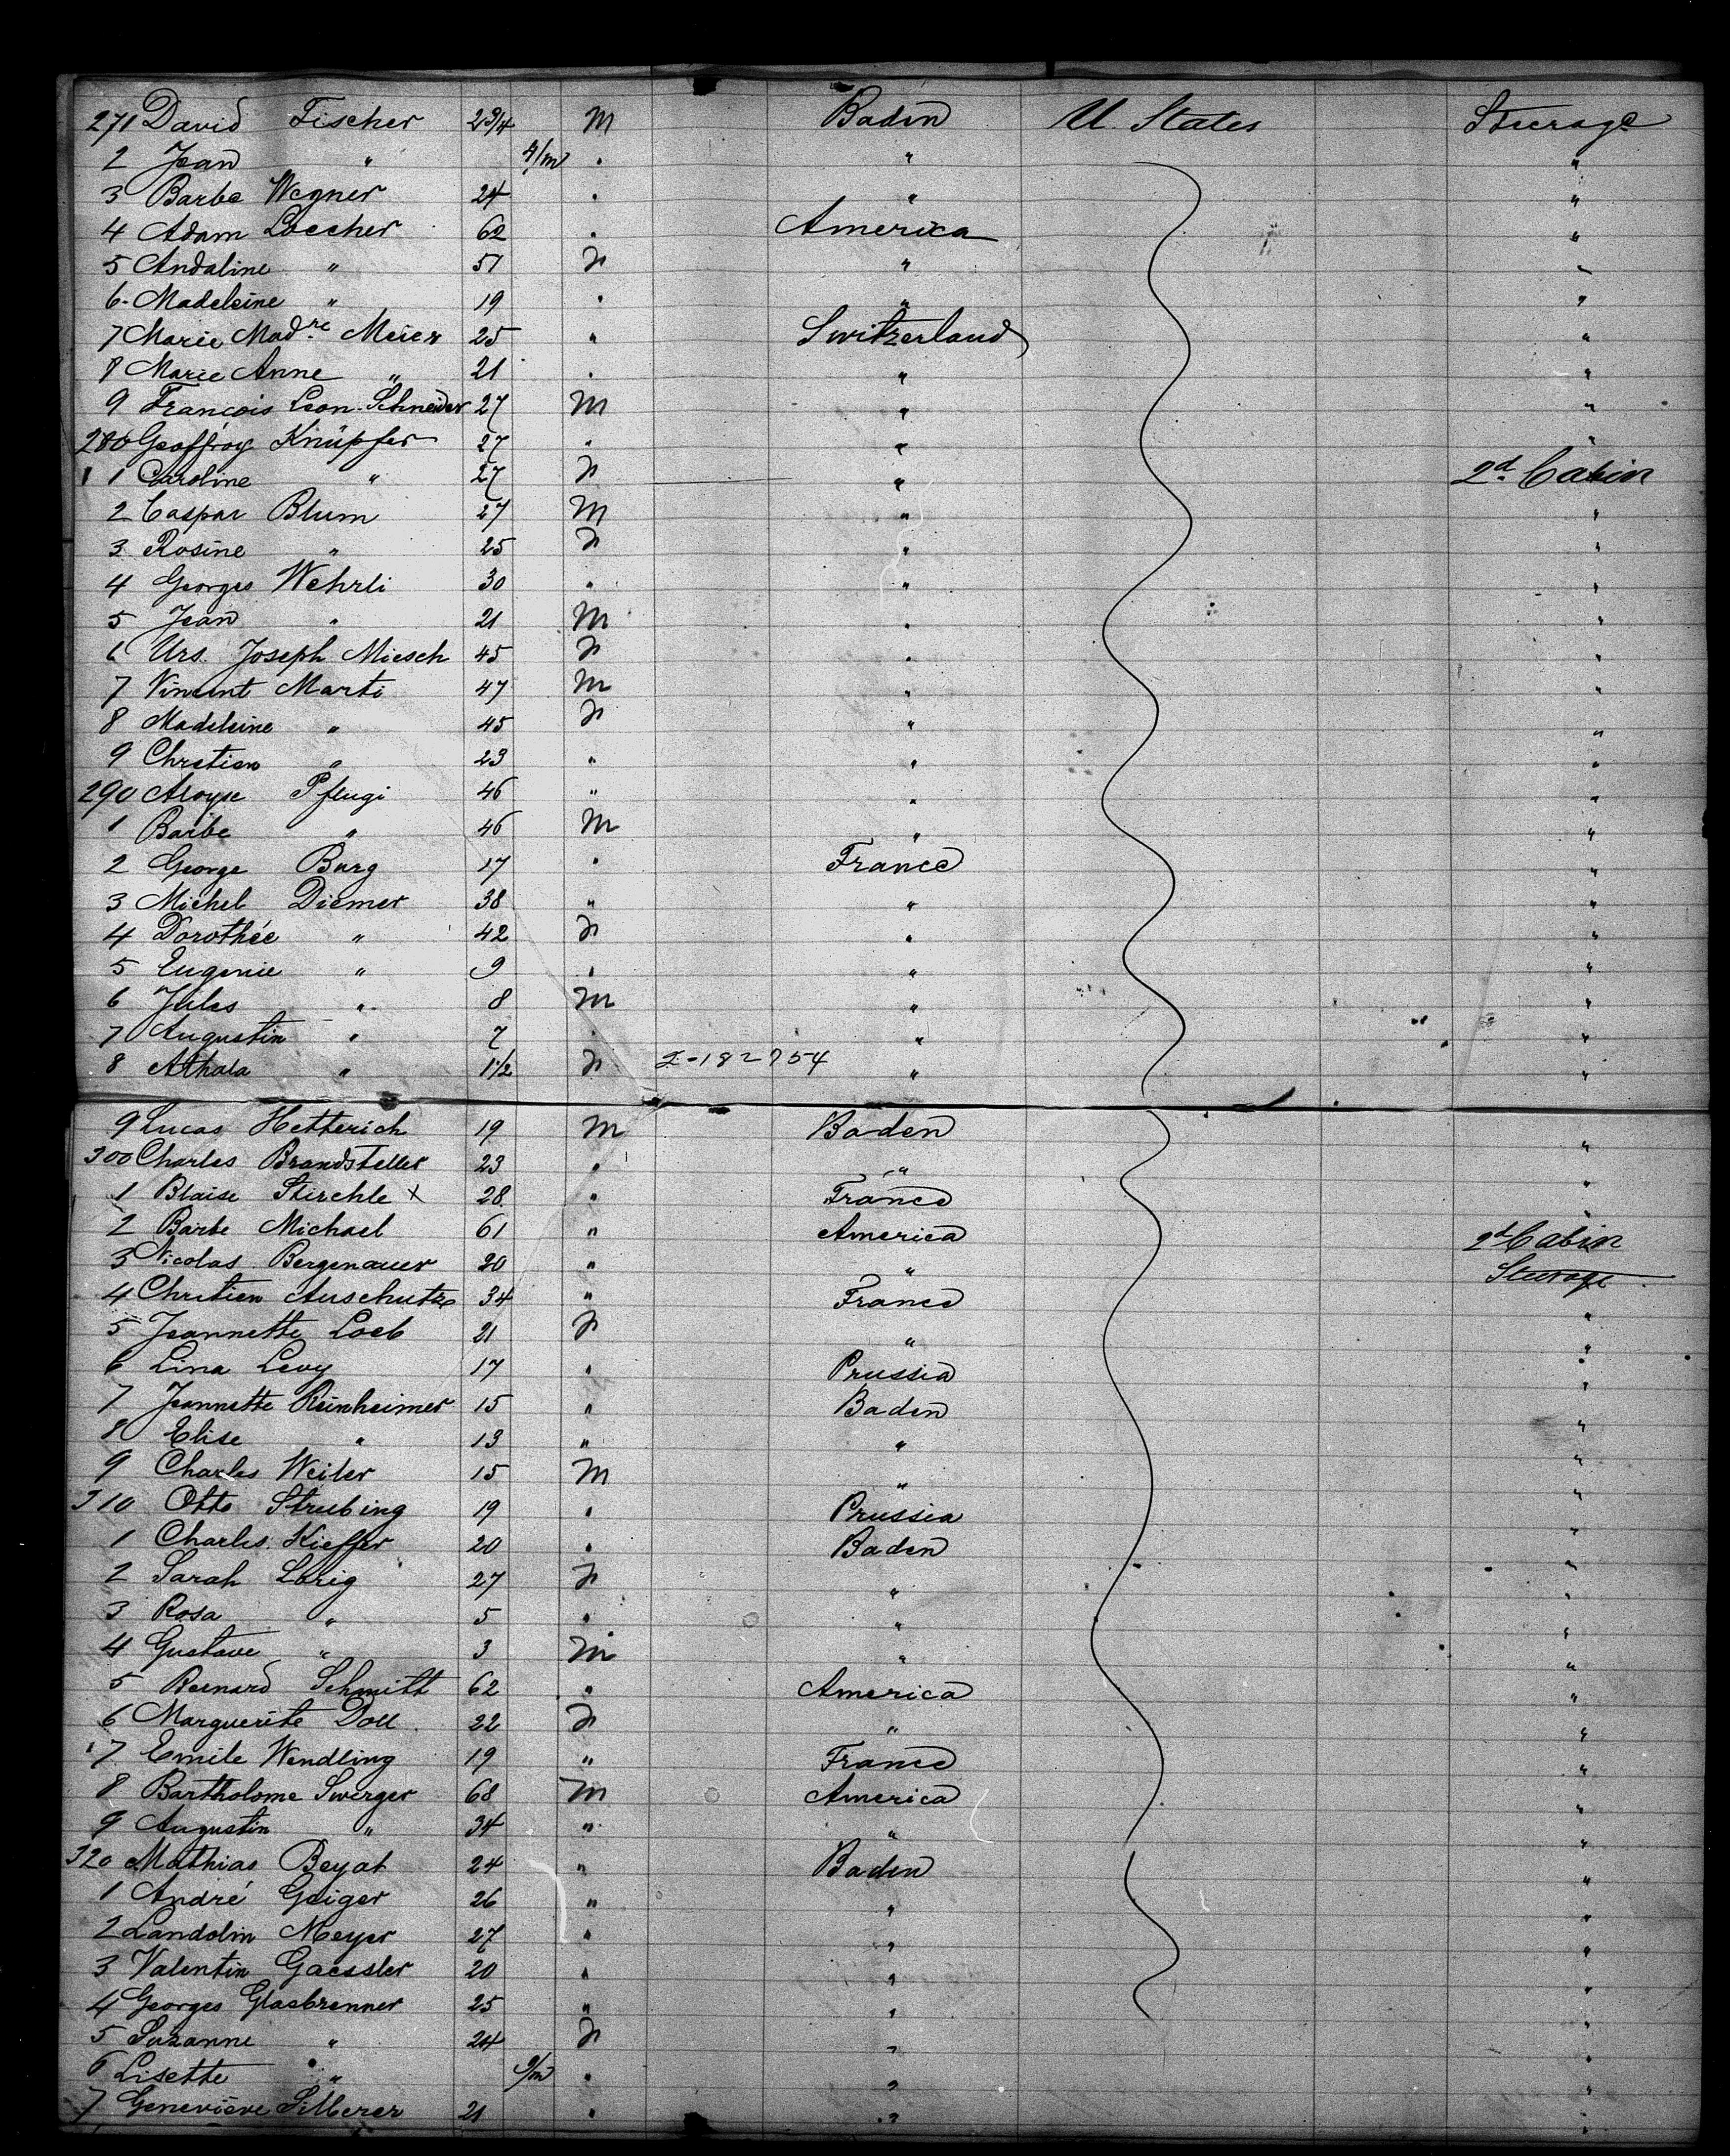 271 David Fischer 2 3/4 M Baden U. States Steerage
2 Jean " 4/m " " "
3 Barbe Wegner 24 " " "
4 Adam Loecher 62 " America "
5 Andaline " 51 F " "
6 Madeleine " 19 " " "
7 Marie Madne Meier 25 " Switzerland "
8 Marie Anne " 21 " " "
9 François Leon Schneider 27 M " "
280 Geoffroy Knüpfer 27 " " "
1 Caroline " 27 F " 2d Cabin
2 Caspar Blum 27 M " "
3 Rosine " 25 F " "
4 Georges Wehrli 30 " " "
5 Jean " 21 M " "
6 Urs. Joseph Miesch 45 F " "
7 Vincent Marti 47 M " "
8 Madeleine " 45 F " "
9 Chretien " 23 " " "
290 Aloyse Pflugi 46 " " "
1 Barbe " 46 M " "
2 George Burg 17 " France "
3 Michel Diemer 38 " " "
4 Dorothée " 42 F " "
5 Eugenie " 9 " " "
6 Jules " 8 M " "
7 Augustin " 7 " " "
8 Athala " 1 1/2 F 2-182754 " "
9 Lucas Hetterich 19 M Baden "
300 Charles Brandsteller 23 " " "
1 Blaise Stirchle x 28 " France "
2 Barbe Michael 61 " America 2d Cabin
3 Nicolas Bergenauer 20 " " Steerage
4 Chretien Auschutze 34 " France "
5 Jeannette Loeb 21 F " "
6 Lina Levy 17 " Prussia "
7 Jeannette Reinheimer 15 " Baden "
8 Elise " 13 " " "
9 Charles Weiler 15 M " "
310 Otto Strubing 19 " Prussia "
1 Charles Kieffer 20 " Baden "
2 Sarah Lorig 27 F " "
3 Rosa " 5 " " "
4 Gustave " 3 M " "
5 Bernard Schmitt 62 " America "
6 Marguerite Doll 22 F " "
7 Emile Wendling 19 " France "
8 Bartholome Swerger 68 M America "
9 Augustin " 34 " " "
320 Mathias Beyat 24 " Baden "
1 André Geiger 26 " " "
2 Landolin Meyer 27 " " "
3 Valentin Gaessler 20 " " "
4 Georges Glasbrenner 25 " " "
5 Suzanne " 24 F " "
6 Lisette " 9/m " " "
7 Geneviève Silberer 21 " " "